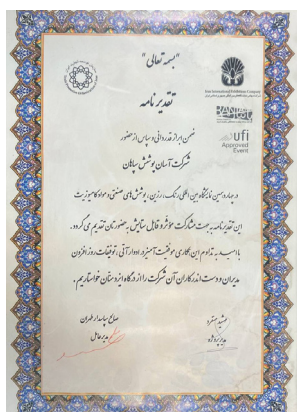 "بسمه تعالی"
Fars International Exhibitions Company
تقدیرنامه
ufi
Approved
Event
ضمن ابراز قدردانی و سپاس از حضور
شرکت آسان پوشش سپاهان
در چهاردهمین نمایشگاه بین المللی رنگ، رزین، پوشش های صنعتی و مواد کامپوزیت
این تقدیرنامه به جهت مشارکت موثر و قابل ستایش به حضورتان تقدیم می گردد.
با امید به تداوم این همکاری موفقیت آمیز در ادوار آتی، توفیقات روزافزون
مدیران و دست اندرکاران آن شرکت را از درگاه ایزد منان خواستاریم.
جمشید
مدیر پروژه
صالح سپاسدار طهران
مدیرعامل